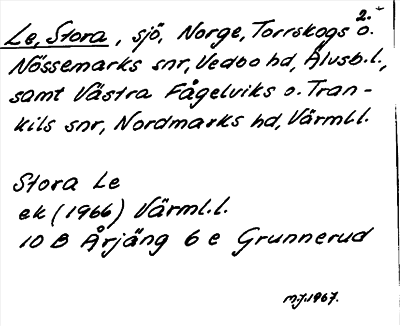 Le, Stora, sjö, Norge, Torrskogs o. 2.
Nössemarks snr, Vedbo hd, Älvsb.l.,
samt Västra Fågelviks o. Tran-
kils snr, Nordmarks hd, Värml.l.
Stora Le
ek (1966) Värml.l.
10 B Årjäng 6 e Grunnerud
MJ.1967.